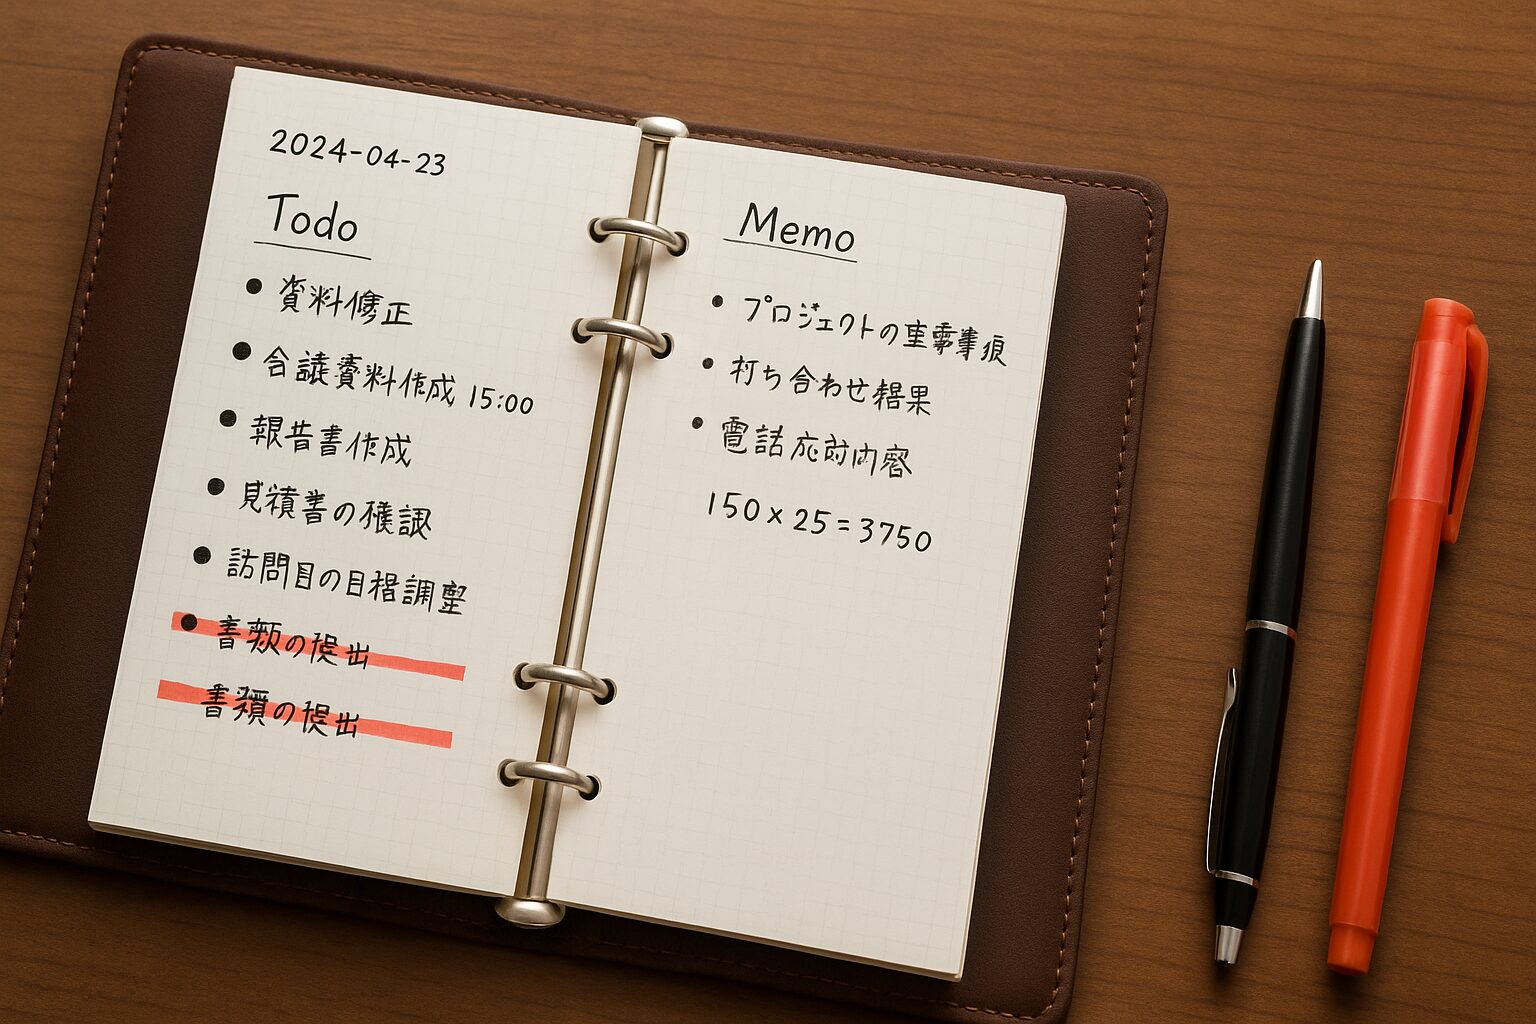 2024-04-23
Todo
資料修正
会議資料作成 15:00
報告書作成
見積書の確認
訪問目の目程調整
書類の提出
書類の提出
Memo
プロジェクトの重要事項
打ち合わせ結果
電話応対内容
150×25=3750